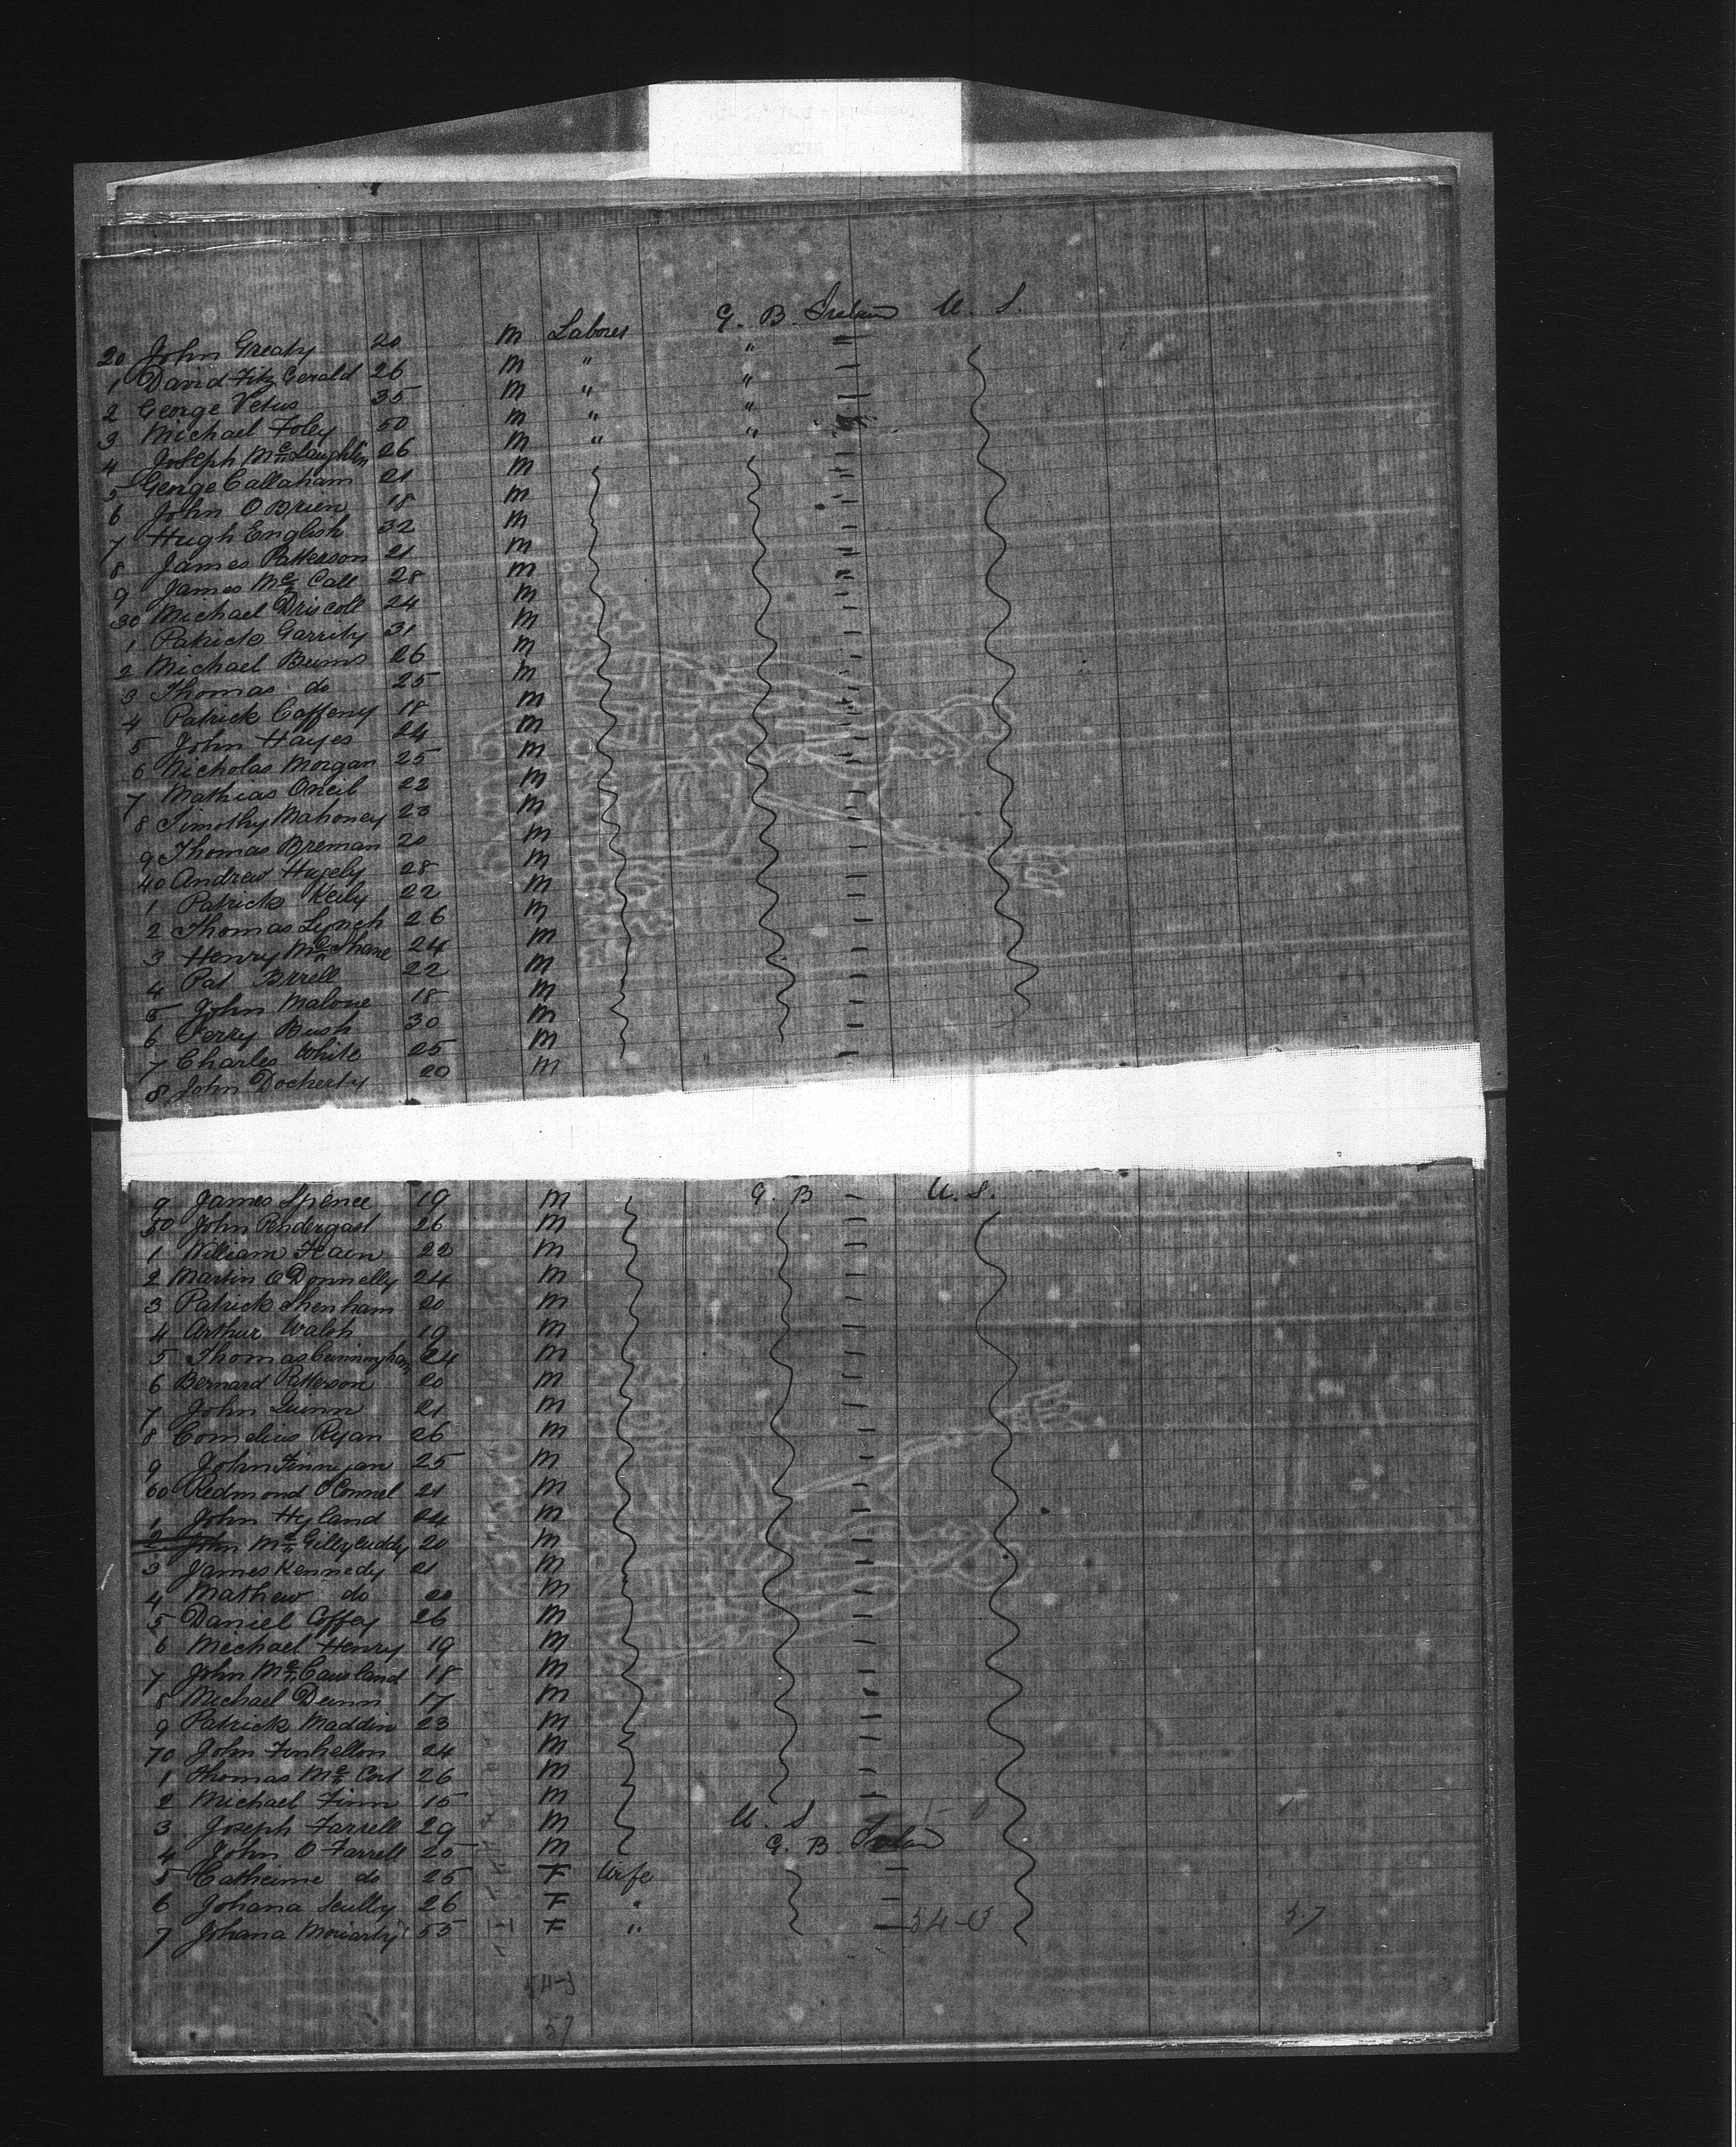 20 John Greaty 20 m Labores G. B. Irelan U. S.
1 David FitzGerald 26 m " "
2 George Vetus 35 m " "
3 Michael Foley 50 m " "
4 Joseph McLaughlin 26 m " "
5 George Callaham 21 m
6 John OBrien 18 m
7 Hugh English 32 m
8 James Patterson 21 m
9 James McCall 28 m
30 Michael Driscoll 24 m
1 Patrick Garrity 31 m
2 Michael Burns 26 m
3 Thomas do 25 m
4 Patrick Caffeny 18 m
5 John Hayes 24 m
6 Nicholas Morgan 25 m
7 Mathias Oneil 22 m
8 Timothy Mahoney 23 m
9 Thomas Breman 20 m
40 Andrew 28 m
1 Patrick Keily 22 m
2 Thomas Lynch 26 m
3 Henry McShane 24 m
4 Pat Birrell 22 m
5 John Malone 18 m
6 Perry Bush 30 m
7 Charles White 25 m
8 John Docherty 20 m
9 James Spence 19 m G. B U. S.
50 John Pendergast 26 m
1 William Hain 22 m
2 Martin O Donnelly 24 m
3 Patrick Shenham 20 m
4 Arthur Walsh 19 m
5 Thomas Cunningham 24 m
6 Bernard Patterson 20 m
7 John Quinn 21 m
8 Cornelius Ryan 26 m
9 John Finnegan 25 m
60 Redmond OConnel 21 m
1 John Hyland 24 m
2 John McGillycuddy 20 m
3 James Kennedy 21 m
4 Mathew do 20 m
5 Daniel Coffey 26 m
6 Michael Henry 19 m
7 John McCausland 18 m
8 Michael Dunn 17 m
9 Patrick Maddin 23 m
70 John Finhellon 24 m
1 Thomas McCort 26 m
2 Michael Finn 15 m
3 Joseph Farrell 29 m U. S
4 John O Farrell 25 m G. B Irelan
5 Catheine do 25 F Wife
6 Johana Scully 26 F "
7 Johana Moriarty 55 F " 54-3 57
54-3
57